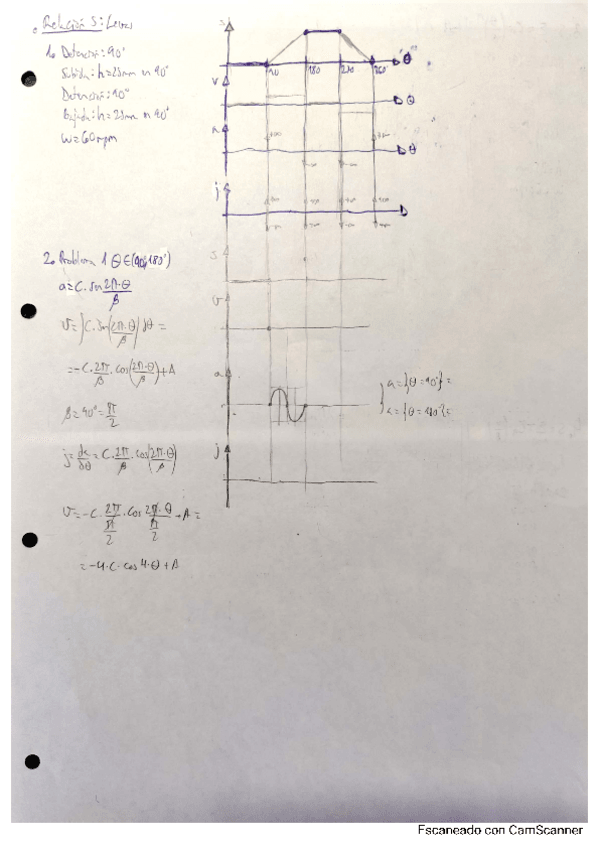 Relación 5: Levas
1. Detención: 90°
Subida: h=25mm en 90°
Detención: 90°
Bajada: h=25mm en 90°
W=60rpm
s
90 180 270 360 θ
v
θ
a
θ
j
2. Problema 1 θ∈(90,180°)
a=C·sen 2π·θ/β
v=∫C·sen(2π·θ/β)dθ=
=-C·2π/β·cos(2π·θ/β)+A
β=90°=π/2
j=da/dθ=C·2π/β·cos(2π·θ/β)
v=-C·2π/(π/2)·cos 2π·θ/(π/2)+A=
=-4·C·cos 4·θ+A
s
v
a
a={θ=90°}=
j
Escaneado con CamScanner